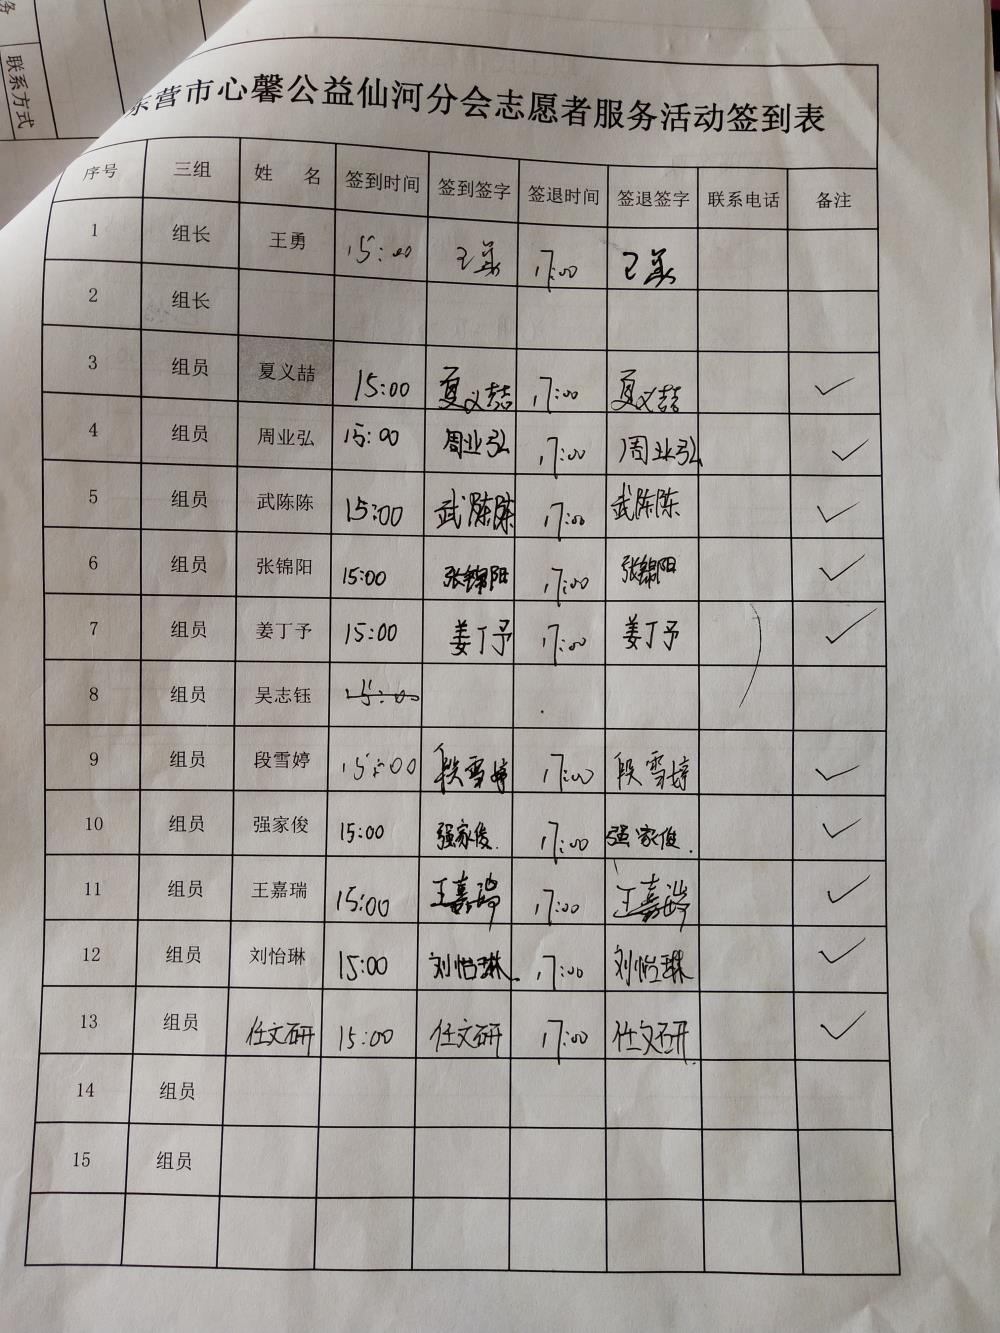 务
联系方式
东营市心馨公益仙河分会志愿者服务活动签到表
序号 三组 姓 名 签到时间 签到签字 签退时间 签退签字 联系电话 备注
1 组长 王勇 15:00 王勇 17:00 王勇
2 组长
3 组员 夏义喆 15:00 夏义喆 17:00 夏义喆 ✓
4 组员 周业弘 15:00 周业弘 17:00 周业弘 ✓
5 组员 武陈陈 15:00 武陈陈 17:00 武陈陈 ✓
6 组员 张锦阳 15:00 张锦阳 17:00 张锦阳 ✓
7 组员 姜丁予 15:00 姜丁予 17:00 姜丁予 ✓
8 组员 吴志钰 15:00
9 组员 段雪婷 15:00 段雪婷 17:00 段雪婷 ✓
10 组员 强家俊 15:00 强家俊. 17:00 强家俊. ✓
11 组员 王嘉瑞 15:00 王嘉瑞 17:00 王嘉瑞 ✓
12 组员 刘怡琳 15:00 刘怡琳. 17:00 刘怡琳 ✓
13 组员 任文研 15:00 任文研 17:00 任文研. ✓
14 组员
15 组员